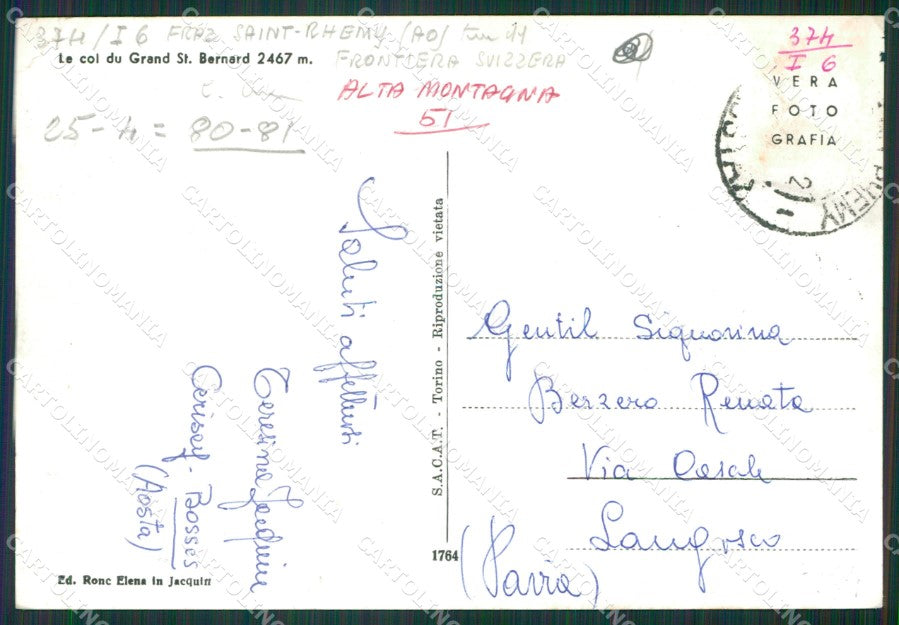 374/I 6 FRAZ SAINT-RHEMY (AO)
Le col du Grand St. Bernard 2467 m.
FRONTIERA SVIZZERA
ALTA MONTAGNA
51
25-4 = 80-81
374
I 6
VERA
FOTO
GRAFIA
RHEMY
Saluti affettuosi
Teresina Jacquin
Cerisey - Bosses
(Aosta)
S.A.C.A.T. - Torino - Riproduzione vietata
1764
Gentil Signorina
Berzero Renata
Via Casale
Langosco
(Pavia)
Ed. Ronc Elena in Jacquin
CARTOLINOMANIA